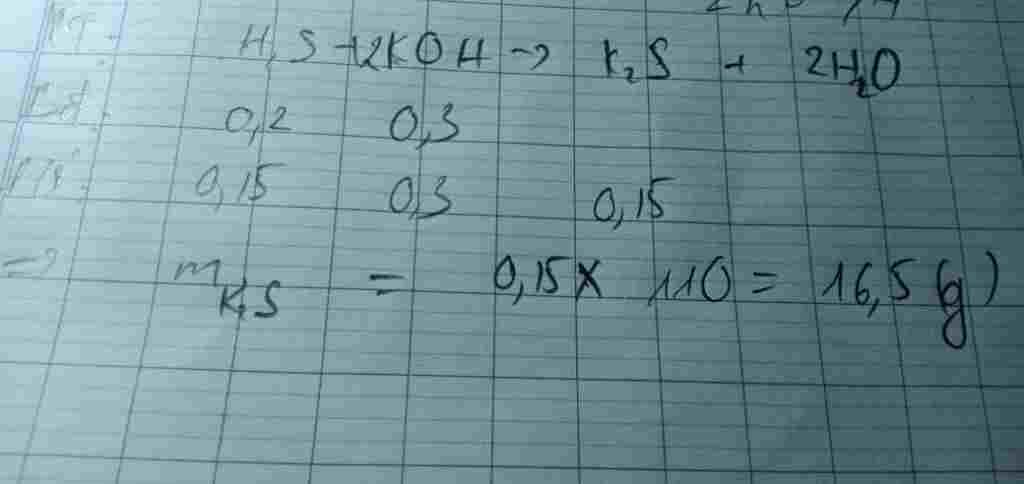 H₂S + 2KOH → K₂S + 2H₂O
0,2 0,3
0,15 0,3 0,15
=> m K₂S = 0,15 x 110 = 16,5 (g)